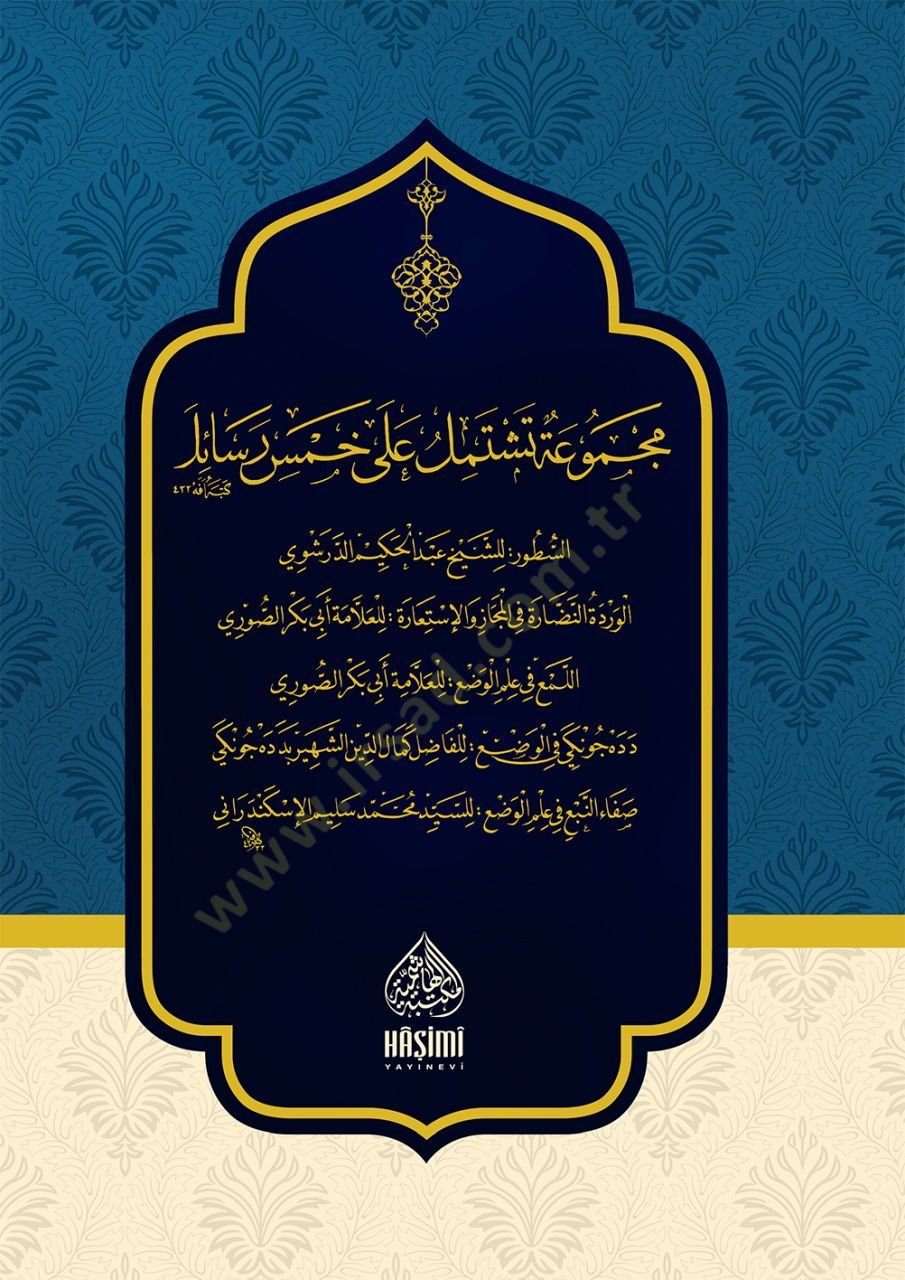 مَجْمُوعَةٌ تَشْتَمِلُ عَلَى خَمْسِ رَسَائِلَ
السُّطُور: لِلشَّيْخِ عَبْدِ الْحَكِيمِ الدَّرْشَوِي
الْوَرْدَةُ النَّضَّارَة فِي الْمَجَازِ وَالْإِسْتِعَارَة: لِلْعَلَّامَة أَبِي بَكْر الصُّورِي
اللُّمَع فِي عِلْمِ الْوَضْع: لِلْعَلَّامَة أَبِي بَكْر الصُّورِي
دَدَه جُونْكِي فِي الْوَضْع: لِلْفَاضِل كَمَال الدِّين الشَّهِير بِدَدَه جُونْكِي
صَفَاء النَّبْع فِي عِلْمِ الْوَضْع: لِلسَّيِّد مُحَمَّد سَلِيم الإِسْكَنْدَرَانِي
المكتبة الهاشمية
HÂŞİMÎ
YAYINEVİ